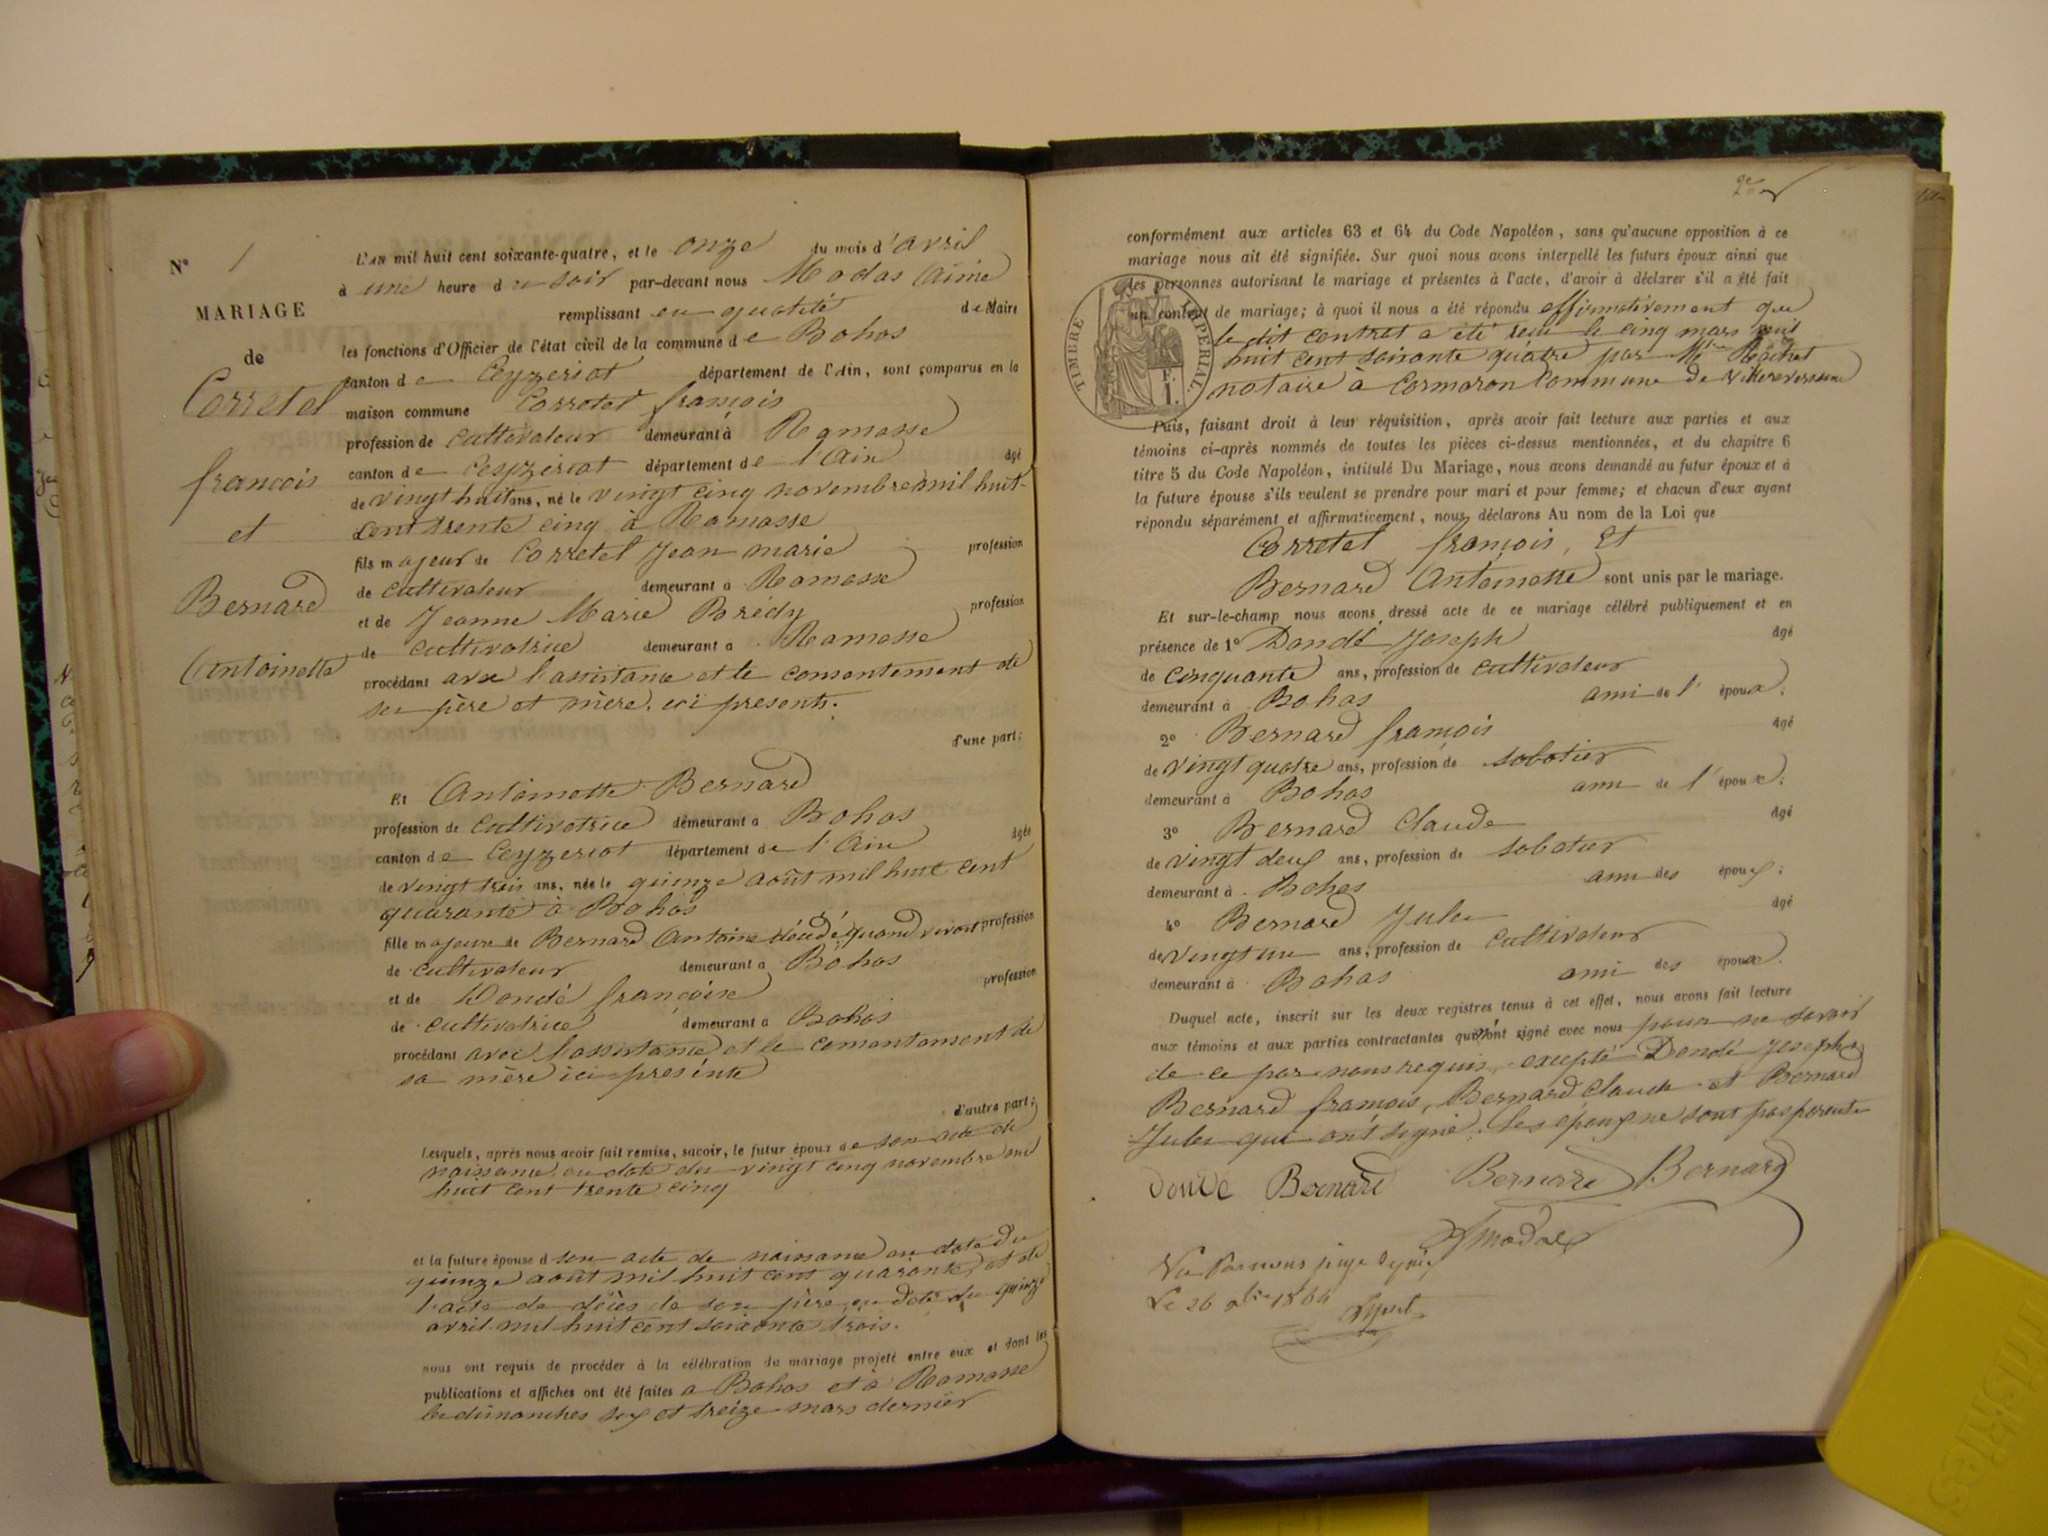 N° 1
MARIAGE
de
Corretel
françois
et
Bernard
Antoinette
L'an mil huit cent soixante-quatre, et le onze du mois d'avril
à une heure du soir par-devant nous Modas Aimé
remplissant en qualité de Maire
les fonctions d'Officier de l'état civil de la commune de Bohas
canton de Ceyzeriat département de l'Ain, sont comparus en la
maison commune Corretel françois
profession de cultivateur demeurant à Ramasse
canton de Ceyzeriat département de l'Ain âgé
de vingt huit ans, né le vingt cinq novembre mil huit-
cent trente cinq à Ramasse
fils majeur de Corretel Jean marie profession
de cultivateur demeurant a Ramasse
et de Jeanne Marie Brédy profession
de cultivatrice demeurant a Ramasse
procédant avec l'assistance et le consentement de
ses père et mère, ici présents.
d'une part;
Et Antoinette Bernard
profession de cultivatrice demeurant a Bohas
canton de Ceyzeriat département de l'Ain âgée
de vingt trois ans, née le quinze août mil huit cent
quarante à Bohas
fille majeure de Bernard Antoine décédé quand vivait profession
de cultivateur demeurant a Bohas
et de Dondé françoise profession
de cultivatrice demeurant a Bohas
procédant avec l'assistance et le consentement de
sa mère ici présente
d'autre part;
Lesquels, après nous avoir fait remise, savoir, le futur époux de son acte de
naissance en date du vingt cinq novembre mil
huit cent trente cinq
et la future épouse d son acte de naissance en date du
quinze août mil huit cent quarante, et de
l'acte de décès de son père en date du quinze
avril mil huit cent soixante trois.
nous ont requis de procéder à la célébration du mariage projeté entre eux et dont les
publications et affiches ont été faites a Bohas et à Ramasse
les dimanches six et treize mars dernier
2e
conformément aux articles 63 et 64 du Code Napoléon, sans qu'aucune opposition à ce
mariage nous ait été signifiée. Sur quoi nous avons interpellé les futurs époux ainsi que
les personnes autorisant le mariage et présentes à l'acte, d'avoir à déclarer s'il a été fait
un contrat de mariage; à quoi il nous a été répondu affirmativement que
le dit contrat a été reçu le cinq mars mil
huit cent soixante quatre par Me Rochet
notaire à Cormoron commune de Villereversure
TIMBRE IMPÉRIAL
Puis, faisant droit à leur réquisition, après avoir fait lecture aux parties et aux
témoins ci-après nommés de toutes les pièces ci-dessus mentionnées, et du chapitre 6
titre 5 du Code Napoléon, intitulé Du Mariage, nous avons demandé au futur époux et à
la future épouse s'ils veulent se prendre pour mari et pour femme; et chacun d'eux ayant
répondu séparément et affirmativement, nous déclarons Au nom de la Loi que
Corretel françois, Et
Bernard Antoinette sont unis par le mariage.
Et sur-le-champ nous avons dressé acte de ce mariage célébré publiquement et en
présence de 1° Dondé Joseph âgé
de cinquante ans, profession de cultivateur
demeurant à Bohas ami de l' époux;
2° Bernard françois âgé
de vingt quatre ans, profession de sabotier
demeurant à Bohas ami de l' époux;
3° Bernard Claude âgé
de vingt deux ans, profession de sabotier
demeurant à Bohas ami des époux;
4° Bernard Jules âgé
de vingt un ans, profession de cultivateur
demeurant à Bohas ami des époux.
Duquel acte, inscrit sur les deux registres tenus à cet effet, nous avons fait lecture
aux témoins et aux parties contractantes qui n'ont signé avec nous pour ne savoir
de ce par nous requis, excepté Dondé Joseph
Bernard françois, Bernard Claude et Bernard
Jules qui ont signé. Les époux ne sont pas parents
Dondé Bernard Bernard Bernard
Vu Par nous juge
Le 26 1864